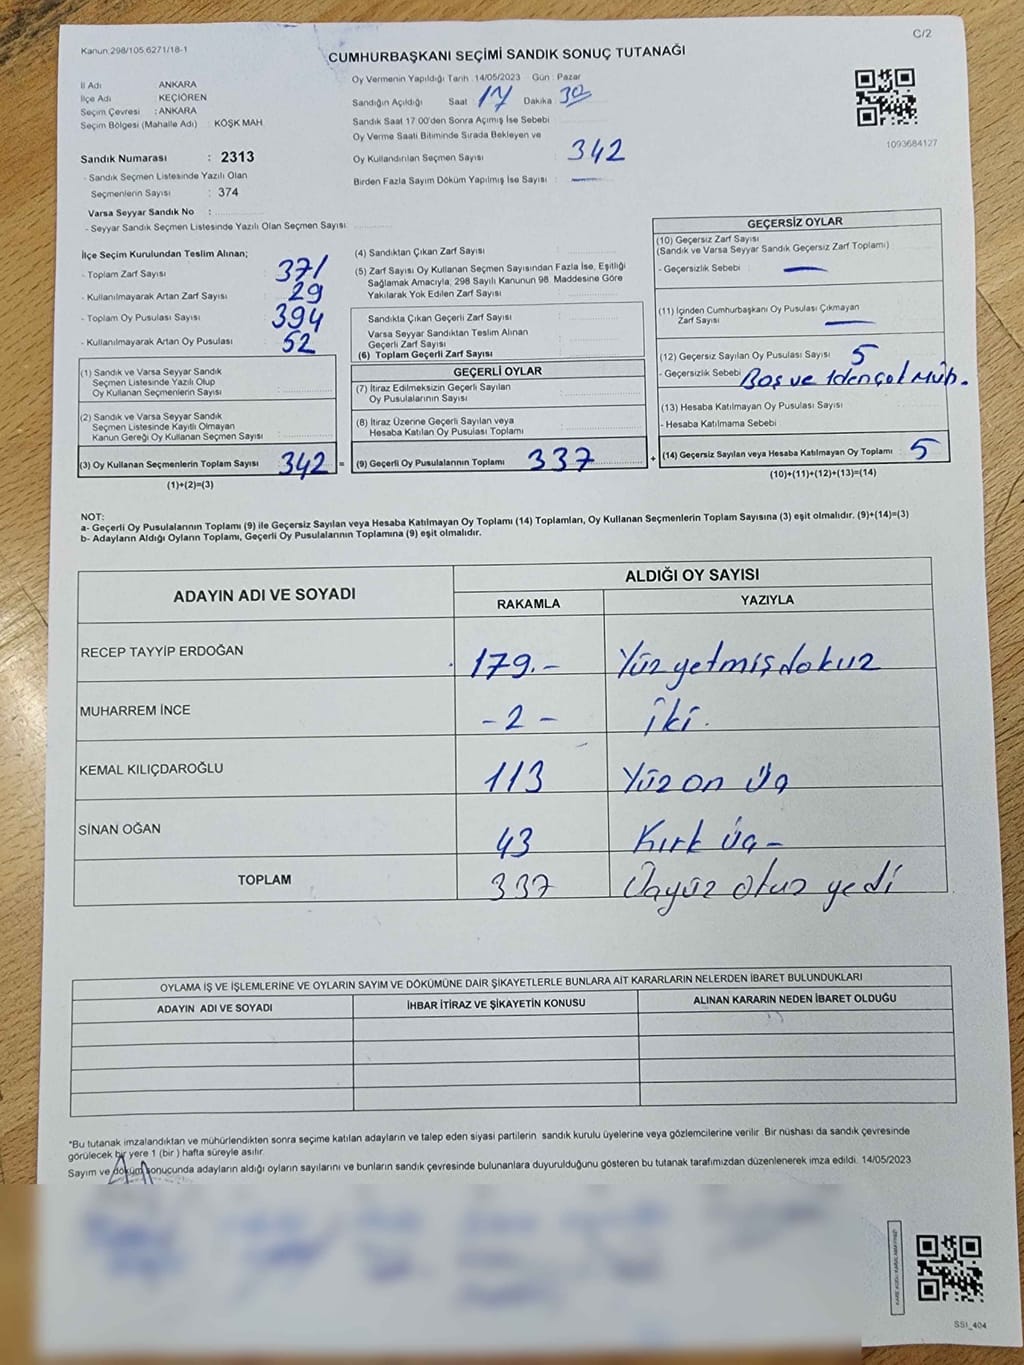 Kanun:298/105.6271/18-1
C/2
CUMHURBAŞKANI SEÇİMİ SANDIK SONUÇ TUTANAĞI
İl Adı ANKARA
İlçe Adı KEÇİÖREN
Seçim Çevresi : ANKARA
Seçim Bölgesi (Mahalle Adı) : KÖŞK MAH
Sandık Numarası : 2313
- Sandık Seçmen Listesinde Yazılı Olan
Seçmenlerin Sayısı : 374
Varsa Seyyar Sandık No :
- Seyyar Sandık Seçmen Listesinde Yazılı Olan Seçmen Sayısı:
Oy Vermenin Yapıldığı Tarih :14/05/2023 Gün : Pazar
Sandığın Açıldığı Saat : 17 Dakika : 30
Sandık Saat 17:00'den Sonra Açımış İse Sebebi :
Oy Verme Saati Bitiminde Sırada Bekleyen ve
Oy Kullandırılan Seçmen Sayısı : 342
Birden Fazla Sayım Döküm Yapılmış İse Sayısı : —
1093684127
İlçe Seçim Kurulundan Teslim Alınan;
- Toplam Zarf Sayısı : 371
- Kullanılmayarak Artan Zarf Sayısı : 29
- Toplam Oy Pusulası Sayısı : 394
- Kullanılmayarak Artan Oy Pusulası : 52
(1) Sandık ve Varsa Seyyar Sandık
Seçmen Listesinde Yazılı Olup
Oy Kullanan Seçmenlerin Sayısı :
(2) Sandık ve Varsa Seyyar Sandık
Seçmen Listesinde Kayıtlı Olmayan
Kanun Gereği Oy Kullanan Seçmen Sayısı :
(3) Oy Kullanan Seçmenlerin Toplam Sayısı : 342 =
(1)+(2)=(3)
(4) Sandıktan Çıkan Zarf Sayısı :
(5) Zarf Sayısı Oy Kullanan Seçmen Sayısından Fazla İse, Eşitliği
Sağlamak Amacıyla, 298 Sayılı Kanunun 98. Maddesine Göre
Yakılarak Yok Edilen Zarf Sayısı :
Sandıkla Çıkan Geçerli Zarf Sayısı :
Varsa Seyyar Sandıktan Teslim Alınan
Geçerli Zarf Sayısı :
(6) Toplam Geçerli Zarf Sayısı :
GEÇERLİ OYLAR
(7) İtiraz Edilmeksizin Geçerli Sayılan
Oy Pusulalarının Sayısı :
(8) İtiraz Üzerine Geçerli Sayılan veya
Hesaba Katılan Oy Pusulası Toplamı :
(9) Geçerli Oy Pusulalarının Toplamı : 337 +
GEÇERSİZ OYLAR
(10) Geçersiz Zarf Sayısı
(Sandık ve Varsa Seyyar Sandık Geçersiz Zarf Toplamı) :
- Geçersizlik Sebebi : —
(11) İçinden Cumhurbaşkanı Oy Pusulası Çıkmayan
Zarf Sayısı : —
(12) Geçersiz Sayılan Oy Pusulası Sayısı : 5
- Geçersizlik Sebebi : Boş ve 1den çok Müh.
(13) Hesaba Katılmayan Oy Pusulası Sayısı :
- Hesaba Katılmama Sebebi :
(14) Geçersiz Sayılan veya Hesaba Katılmayan Oy Toplamı : 5
(10)+(11)+(12)+(13)=(14)
NOT:
a- Geçerli Oy Pusulalarının Toplamı (9) ile Geçersiz Sayılan veya Hesaba Katılmayan Oy Toplamı (14) Toplamları, Oy Kullanan Seçmenlerin Toplam Sayısına (3) eşit olmalıdır. (9)+(14)=(3)
b- Adayların Aldığı Oyların Toplamı, Geçerli Oy Pusulalarının Toplamına (9) eşit olmalıdır.
ADAYIN ADI VE SOYADI
ALDIĞI OY SAYISI
RAKAMLA YAZIYLA
RECEP TAYYİP ERDOĞAN 179.- Yüz yetmiş dokuz
MUHARREM İNCE - 2 - iki.
KEMAL KILIÇDAROĞLU 113 Yüz on üç
SİNAN OĞAN 43 Kırk üç -
TOPLAM 337 Üçyüz otuz yedi
OYLAMA İŞ VE İŞLEMLERİNE VE OYLARIN SAYIM VE DÖKÜMÜNE DAİR ŞİKAYETLERLE BUNLARA AİT KARARLARIN NELERDEN İBARET BULUNDUKLARI
ADAYIN ADI VE SOYADI İHBAR İTİRAZ VE ŞİKAYETİN KONUSU ALINAN KARARIN NEDEN İBARET OLDUĞU
*Bu tutanak imzalandıktan ve mühürlendikten sonra seçime katılan adayların ve talep eden siyasi partilerin sandık kurulu üyelerine veya gözlemcilerine verilir. Bir nüshası da sandık çevresinde
görülecek bir yere 1 (bir ) hafta süreyle asılır.
Sayım ve döküm sonucunda adayların aldığı oyların sayılarını ve bunların sandık çevresinde bulunanlara duyurulduğunu gösteren bu tutanak tarafımızdan düzenlenerek imza edildi. 14/05/2023
SSI_404